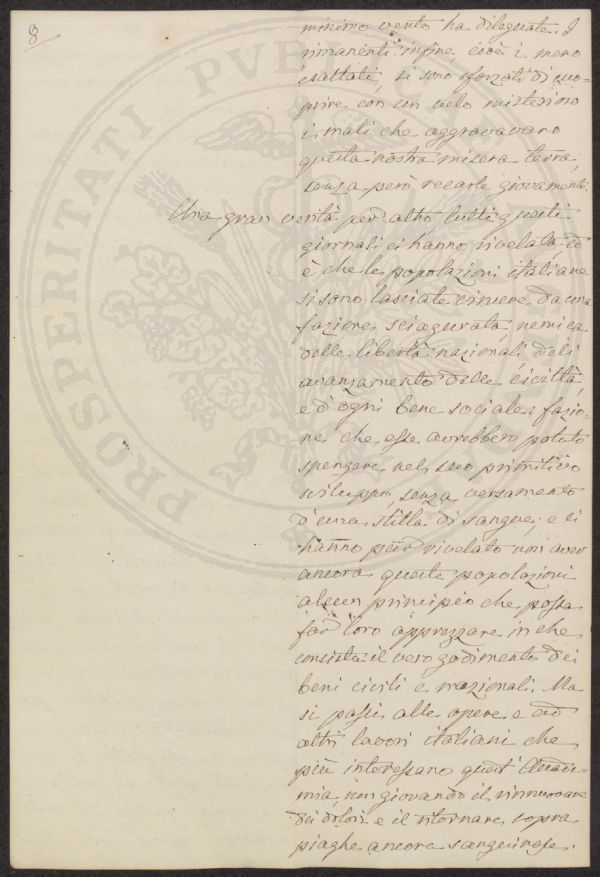 8
minimo vento ha dileguate. I
rimanenti infine, cioè i meno
esaltati, si sono sforzati di cuo=
prire con un velo misterioso
i mali che aggravavano
questa nostra misera terra,
senza però recarle giovamenti.
Una gran verità per altro tutti questi
giornali ci hanno rivelata, ed
è che le popolazioni italiane
si sono lasciate vincere da una
fazione sciagurata, nemica
delle libertà nazionali, dell'
avanzamento delle civiltà,
e d'ogni bene sociale; fazio=
ne che esse avrebbero potuto
spengere nel suo primitivo
sviluppo, senza versamento
d'una stilla di sangue; e ci
hanno pur rivelato non aver
ancora queste popolazioni
alcun principio che possa
far loro apprezzare in che
consista il vero godimento dei
beni civili e nazionali. Ma
si passi alle opere e ad
altri lavori italiani che
più interessano quest'Accade=
mia, non giovando il rinnuovare
dei dolori e il ritornare sopra
piaghe ancora sanguinose.
PROSPERITATI PVBLICAE